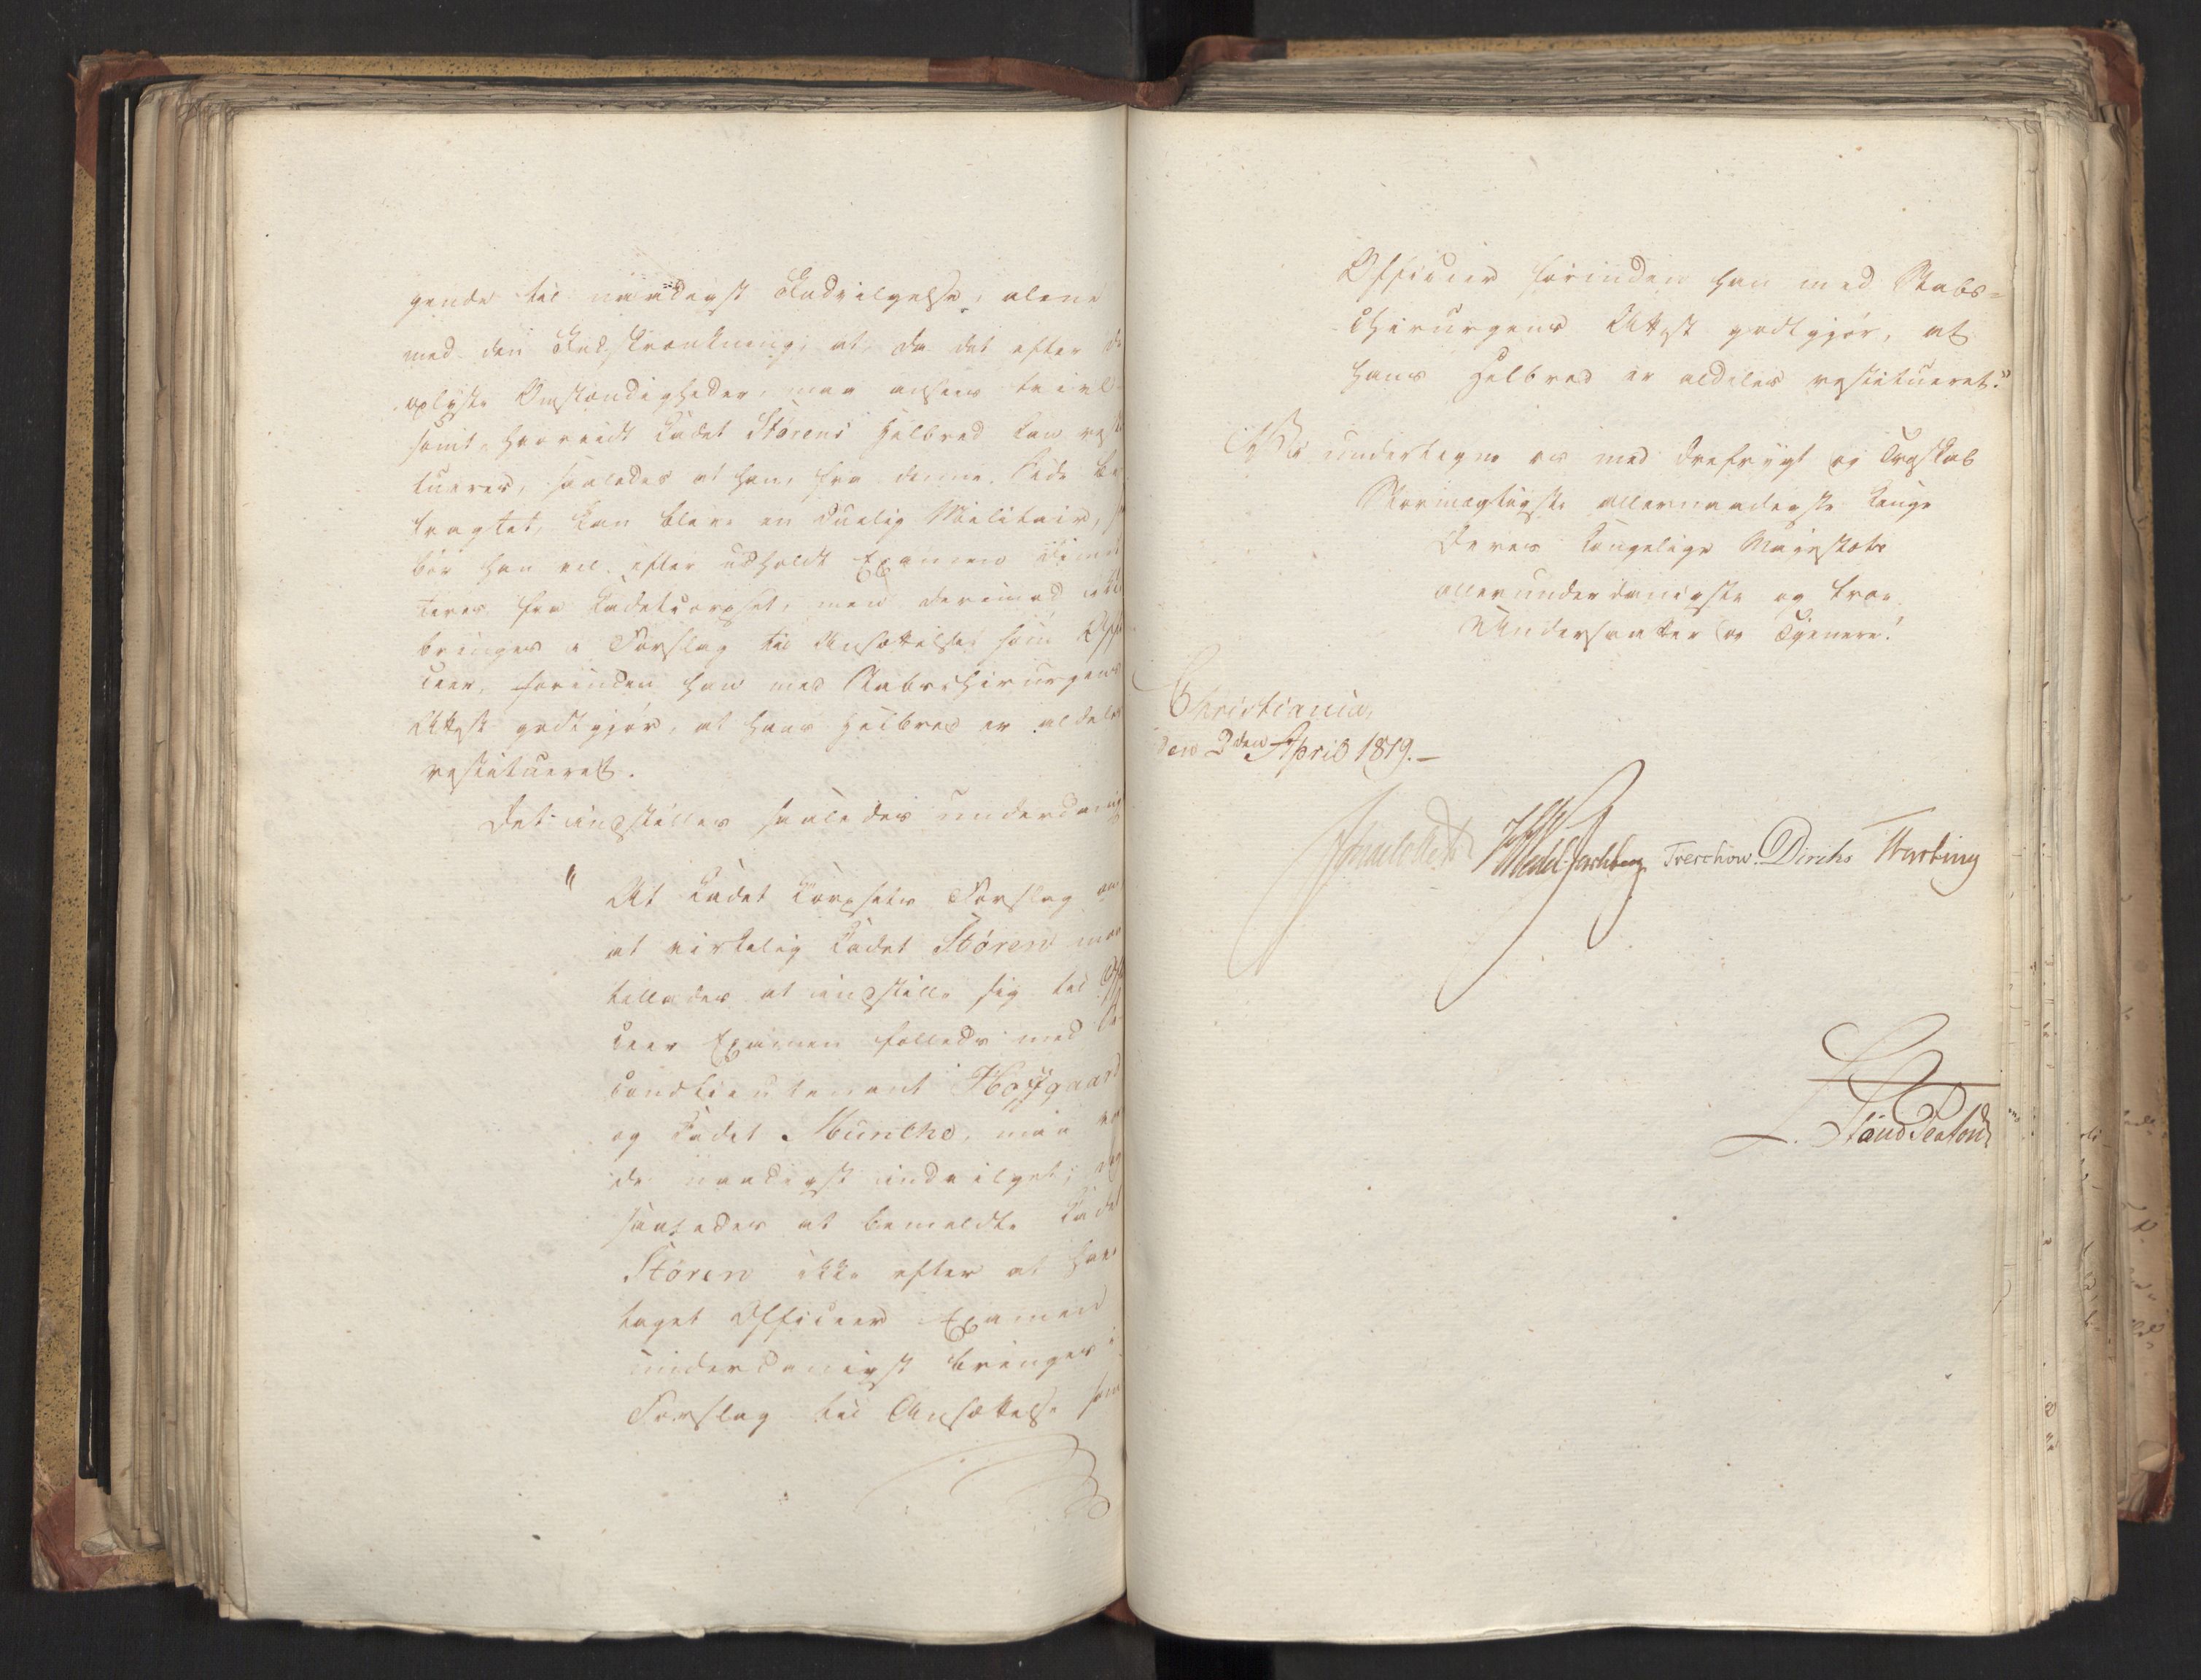 gende til naadigst Indvilgelse, alene
med den Indskrænkning, at da det efter de
oplyste Omstændigheder, maa ansees tvivl
somt, hvorvidt Cadet Størens Helbred kan resti
tueres, saaledes at han, fra denne Side be
tragtet, kan blive en duelig Militair,
bør han vel efter udholdt Examen dimit
teres fra Cadetcorpset, men derimod ikke
bringes i Forslag til Ansættelse som Offi
ceer, forinden han med Stabschirurgens
Attest godtgjør, at hans Helbred er aldeles
restitueret.
Det indstilles saaledes underdanig
" At Cadet Corpsets Forslag om
at virkelig Cadet Støren maa
tillades at indstille sig til Offi
ceer Examen følleds med Se
condlieutenant Hoffgaard
og Cadet Munthe, maa vor
de naadigst indvilget, dog
saaledes at bemeldte Cadet
Støren ikke efter at have
taget Officeer Examen
underdanigst bringes i
Forslag til Ansættelse som
Officier forinden han med Stabs=
Chirurgens Attest godtgjør, at
hans Helbred er aldeles restitueret."
Vi undertegne os med Ærefrygt og Troskab
Stormægtigste allernaadigste Konge
Deres Kongelige Majestæts
allerunderdanigste og troe
Undersaatter og Tjenere!
Christiania,
den 2den April 1819.-
Treschow. Diriks